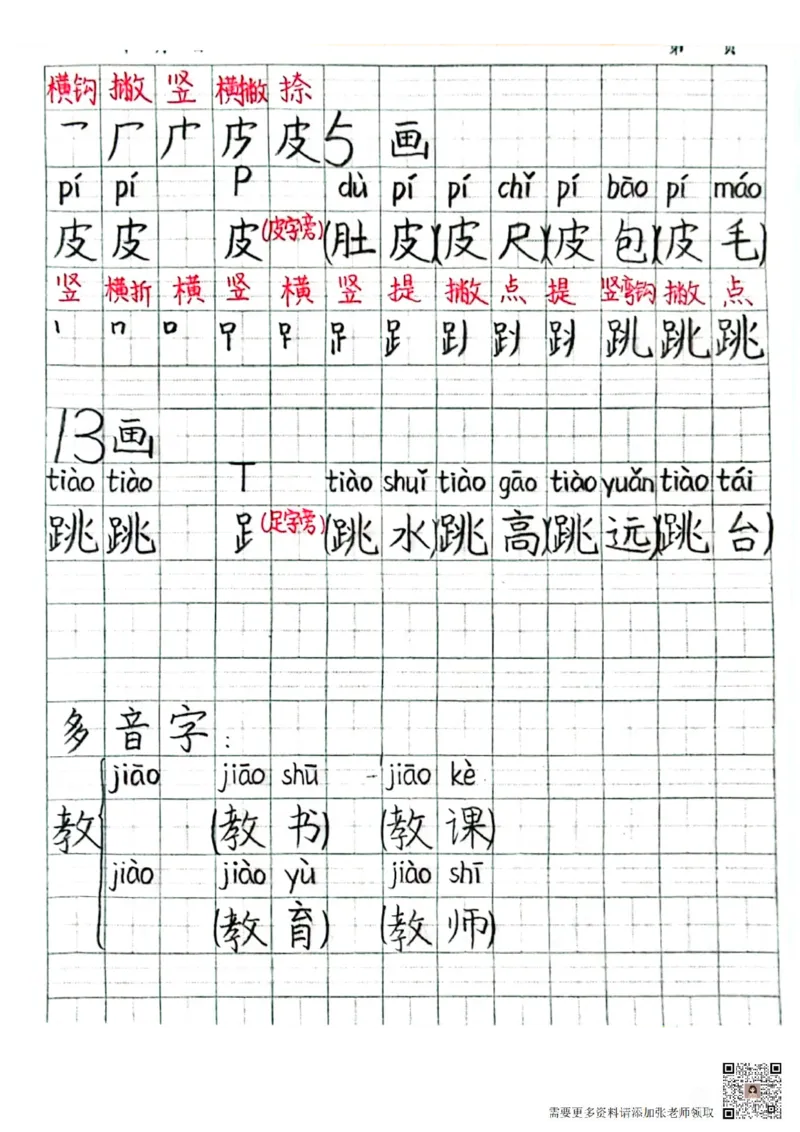 第 页
横钩 撇 竖 横撇 捺
皮 5 画
pí pí P dù pí pí chǐ pí bāo pí máo
皮 皮 皮(皮字旁) (肚 皮)(皮 尺)(皮 包)(皮 毛)
竖 横折 横 竖 横 竖 提 撇 点 提 竖弯钩 撇 点
跳
13画
tiào tiào T tiào shuǐ tiào gāo tiào yuǎn tiào tái
跳 跳 𧾷(足字旁) (跳 水)(跳 高)(跳 远)(跳 台)
多 音 字:
jiāo jiāo shū jiāo kè
教 (教 书) (教 课)
jiào jiào yù jiào shī
(教 育) (教 师)
需要更多资料请添加张老师领取